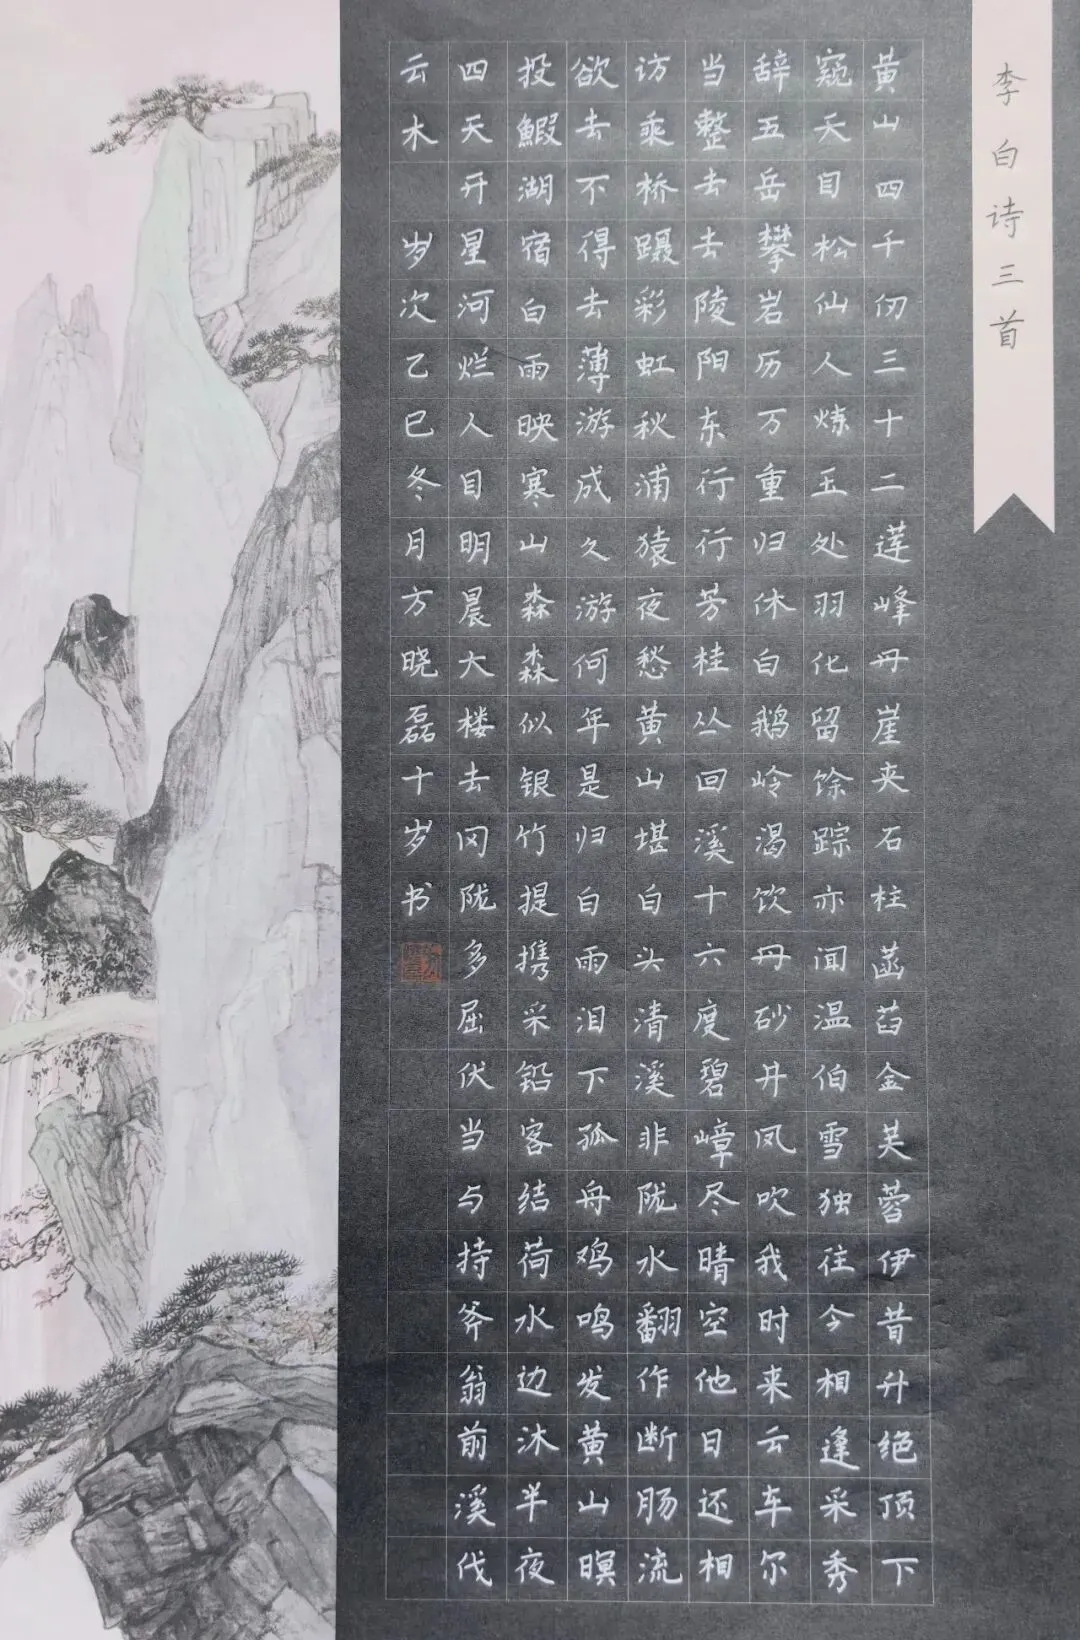 李白诗三首
黄山四千仞三十二莲峰丹崖夹石柱菡萏金芙蓉伊昔升绝顶下
窥天目松仙人炼玉处羽化留馀踪亦闻温伯雪独往今相逢采秀
辞五岳攀岩历万重归休白鹅岭渴饮丹砂井凤吹我时来云车尔
当整去去陵阳东行行芳桂丛回溪十六度碧嶂尽晴空他日还相
访乘桥蹑彩虹秋浦猿夜愁黄山堪白头清溪非陇水翻作断肠流
欲去不得去薄游成久游何年是归日雨泪下孤舟鸡鸣发黄山暝
投鰕湖宿白雨映寒山森森似银竹提携采铅客结荷水边沐半夜
四天开星河烂人目明晨大楼去冈陇多屈伏当与持斧翁前溪伐
云木 岁次乙巳冬月方晓磊十岁书